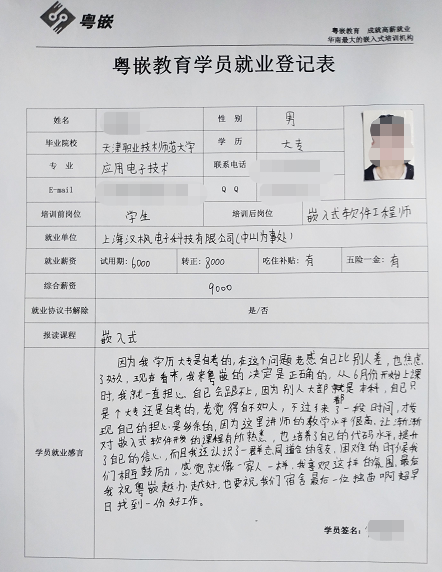 粤嵌
粤嵌教育 成就高薪就业
华南最大的嵌入式培训机构
粤嵌教育学员就业登记表
姓名 性别 男
毕业院校 天津职业技术师范大学 学历 大专
专业 应用电子技术 联系电话
E-mail Q Q
培训前岗位 学生 培训后岗位 嵌入式软件工程师
就业单位 上海汉枫电子科技有限公司(中山办事处)
就业薪资 试用期:6000 转正:8000 吃住补贴:有 五险一金:有
综合薪资 9000
就业协议书解除 是/否
报读课程 嵌入式
学员就业感言
因为我学历大专是自考的,在这个问题老感自己比别人差,也焦虑
了好久,现在看来,我来粤嵌的决定是正确的,从6月份开始上课
时,我就一直担心自己会跟不上,因为别人大部都是本科,自己只
是个大专还是自考的,老觉得自不如人,不过来了一段时间,才发
现自己的担心是多余的,因为这里讲师的教学水平很高,让渐渐
对嵌入式软件开发的课程有所熟悉,也培养了自己的代码水平,提升
了自己的信心,而且我还认识了一群志同道合的舍友,困难的时候我
们相互鼓励,感觉就像一家人一样,我喜欢这样的氛围,最后
我祝粤嵌越办越好,也要祝我们宿舍最后一位独苗啊超早
日找到一份好工作。
学员签名: